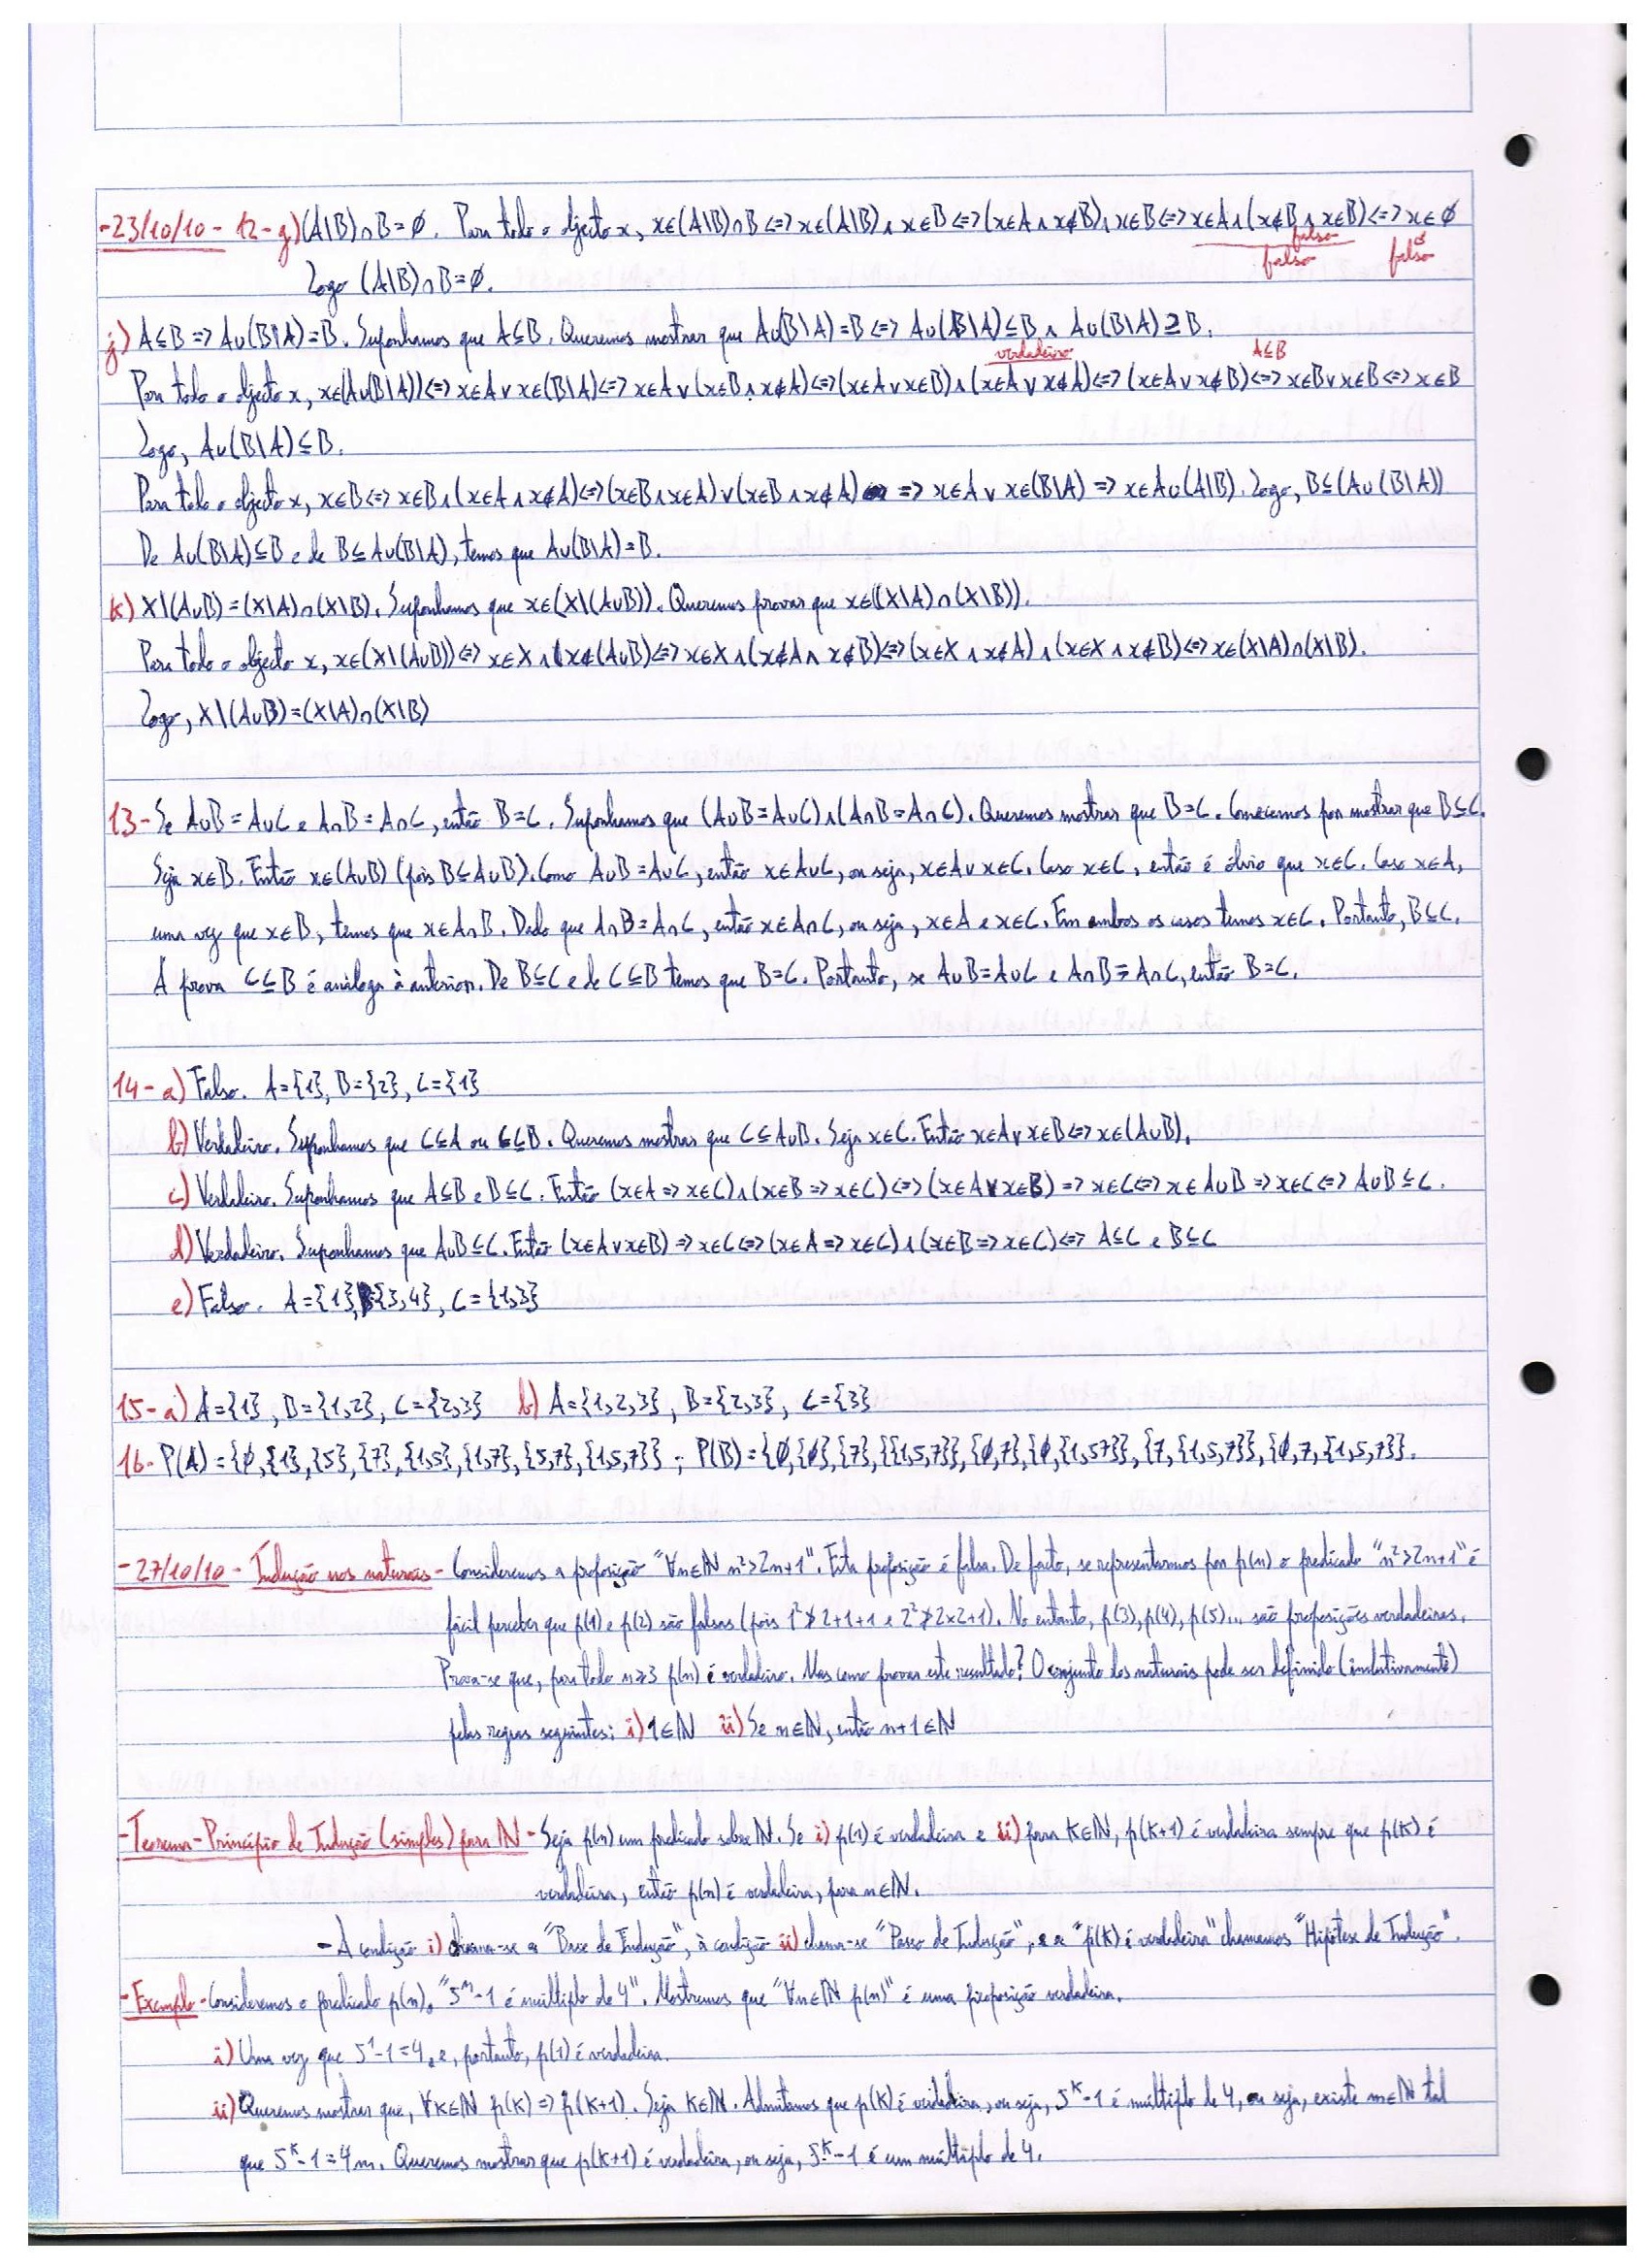 -23/10/10- 12-g) (A\B)∩B=∅. Para todo o objecto x, x∈(A\B)∩B<=>x∈(A\B)∧x∈B<=>(x∈A∧x∉B)∧x∈B<=>x∈A∧(x∉B∧x∈B)<=>x∈∅
falso
falso falso
Logo (A\B)∩B=∅.
j) A⊆B=>A∪(B\A)=B. Suponhamos que A⊆B. Queremos mostrar que A∪(B\A)=B<=>A∪(B\A)⊆B∧A∪(B\A)⊇B.
verdadeiro A⊆B
Para todo o objecto x, x∈(A∪(B\A))<=>x∈A∨x∈(B\A)<=>x∈A∨(x∈B∧x∉A)<=>(x∈A∨x∈B)∧(x∈A∨x∉A)<=>(x∈A∨x∉B)<=>x∈B∨x∈B<=>x∈B
Logo, A∪(B\A)⊆B.
Para todo o objecto x, x∈B<=>x∈B∧(x∈A∧x∉A)<=>(x∈B∧x∈A)∨(x∈B∧x∉A) => x∈A∨x∈(B\A) => x∈A∪(A\B). Logo, B⊆(A∪(B\A))
De A∪(B\A)⊆B e de B⊆A∪(B\A), temos que A∪(B\A)=B.
k) X\(A∪B)=(X\A)∩(X\B). Suponhamos que x∈(X\(A∪B)). Queremos provar que x∈((X\A)∩(X\B)).
Para todo o objecto x, x∈(X\(A∪B))<=>x∈X∧x∉(A∪B)<=>x∈X∧(x∉A∧x∉B)<=>(x∈X∧x∉A)∧(x∈X∧x∉B)<=>x∈(X\A)∩(X\B).
Logo, X\(A∪B)=(X\A)∩(X\B)
13- Se A∪B=A∪C e A∩B=A∩C, então B=C. Suponhamos que (A∪B=A∪C)∧(A∩B=A∩C). Queremos mostrar que B=C. Comecemos por mostrar que B⊆C.
Seja x∈B. Então x∈(A∪B) (pois B⊆A∪B). Como A∪B=A∪C, então x∈A∪C, ou seja, x∈A∨x∈C. Caso x∈C, então é óbvio que x∈C. Caso x∈A,
uma vez que x∈B, temos que x∈A∩B. Dado que A∩B=A∩C, então x∈A∩C, ou seja, x∈A e x∈C. Em ambos os casos temos x∈C. Portanto, B⊆C.
A prova C⊆B é análoga à anterior. De B⊆C e de C⊆B temos que B=C. Portanto, se A∪B=A∪C e A∩B=A∩C, então B=C.
14- a) Falso. A={1}, B={2}, C={1}
b) Verdadeiro. Suponhamos que C⊆A ou C⊆B. Queremos mostrar que C⊆A∪B. Seja x∈C. Então x∈A∨x∈B<=>x∈(A∪B).
c) Verdadeiro. Suponhamos que A⊆B e B⊆C. Então (x∈A=>x∈C)∧(x∈B=>x∈C)<=>(x∈A∨x∈B)=>x∈C<=>x∈A∪B=>x∈C<=>A∪B⊆C.
d) Verdadeiro. Suponhamos que A∪B⊆C. Então (x∈A∨x∈B)=>x∈C<=>(x∈A=>x∈C)∧(x∈B=>x∈C)<=>A⊆C e B⊆C
e) Falso. A={1}, B={3,4}, C={1,3}
15- a) A={1}, B={1,2}, C={2,3} b) A={1,2,3}, B={2,3}, C={3}
16- P(A)={∅,{1},{5},{7},{1,5},{1,7},{5,7},{1,5,7}} ; P(B)={∅,{∅},{7},{{1,5,7}},{∅,7},{∅,{1,5,7}},{7,{1,5,7}},{∅,7,{1,5,7}}.
-27/10/10- Indução nos naturais- Consideremos a proposição "∀n∈ℕ n²>2n+1". Esta proposição é falsa. De facto, se representarmos por p(n) o predicado "n²>2n+1" é
fácil perceber que p(1) e p(2) são falsas (pois 1²≯2+1+1 e 2²≯2x2+1). No entanto, p(3), p(4), p(5)... são proposições verdadeiras.
Prova-se que, para todo n≥3 p(n) é verdadeiro. Mas como provar este resultado? O conjunto dos naturais pode ser definido (indutivamente)
pelas regras seguintes: i) 1∈ℕ ii) Se n∈ℕ, então n+1∈ℕ
-Teorema-Princípio de Indução (simples) para ℕ- Seja p(n) um predicado sobre ℕ. Se i) p(1) é verdadeira e ii) para K∈ℕ, p(K+1) é verdadeira sempre que p(K) é
verdadeira, então p(n) é verdadeira, para n∈ℕ.
- A condição i) chama-se a "Base de Indução", à condição ii) chama-se "Passo de Indução", e a "p(K) é verdadeira" chamemos "Hipótese de Indução".
-Exemplo- Consideremos o predicado p(n), "5ⁿ-1 é múltiplo de 4". Mostremos que "∀n∈ℕ p(n)" é uma proposição verdadeira.
i) Uma vez que 5¹-1=4, e, portanto, p(1) é verdadeira.
ii) Queremos mostrar que, ∀K∈ℕ p(K)=>p(K+1). Seja K∈ℕ. Admitamos que p(K) é verdadeira, ou seja, 5ᴷ-1 é múltiplo de 4, ou seja, existe m∈ℕ tal
que 5ᴷ-1=4m. Queremos mostrar que p(K+1) é verdadeira, ou seja, 5ᴷ-1 é um múltiplo de 4.